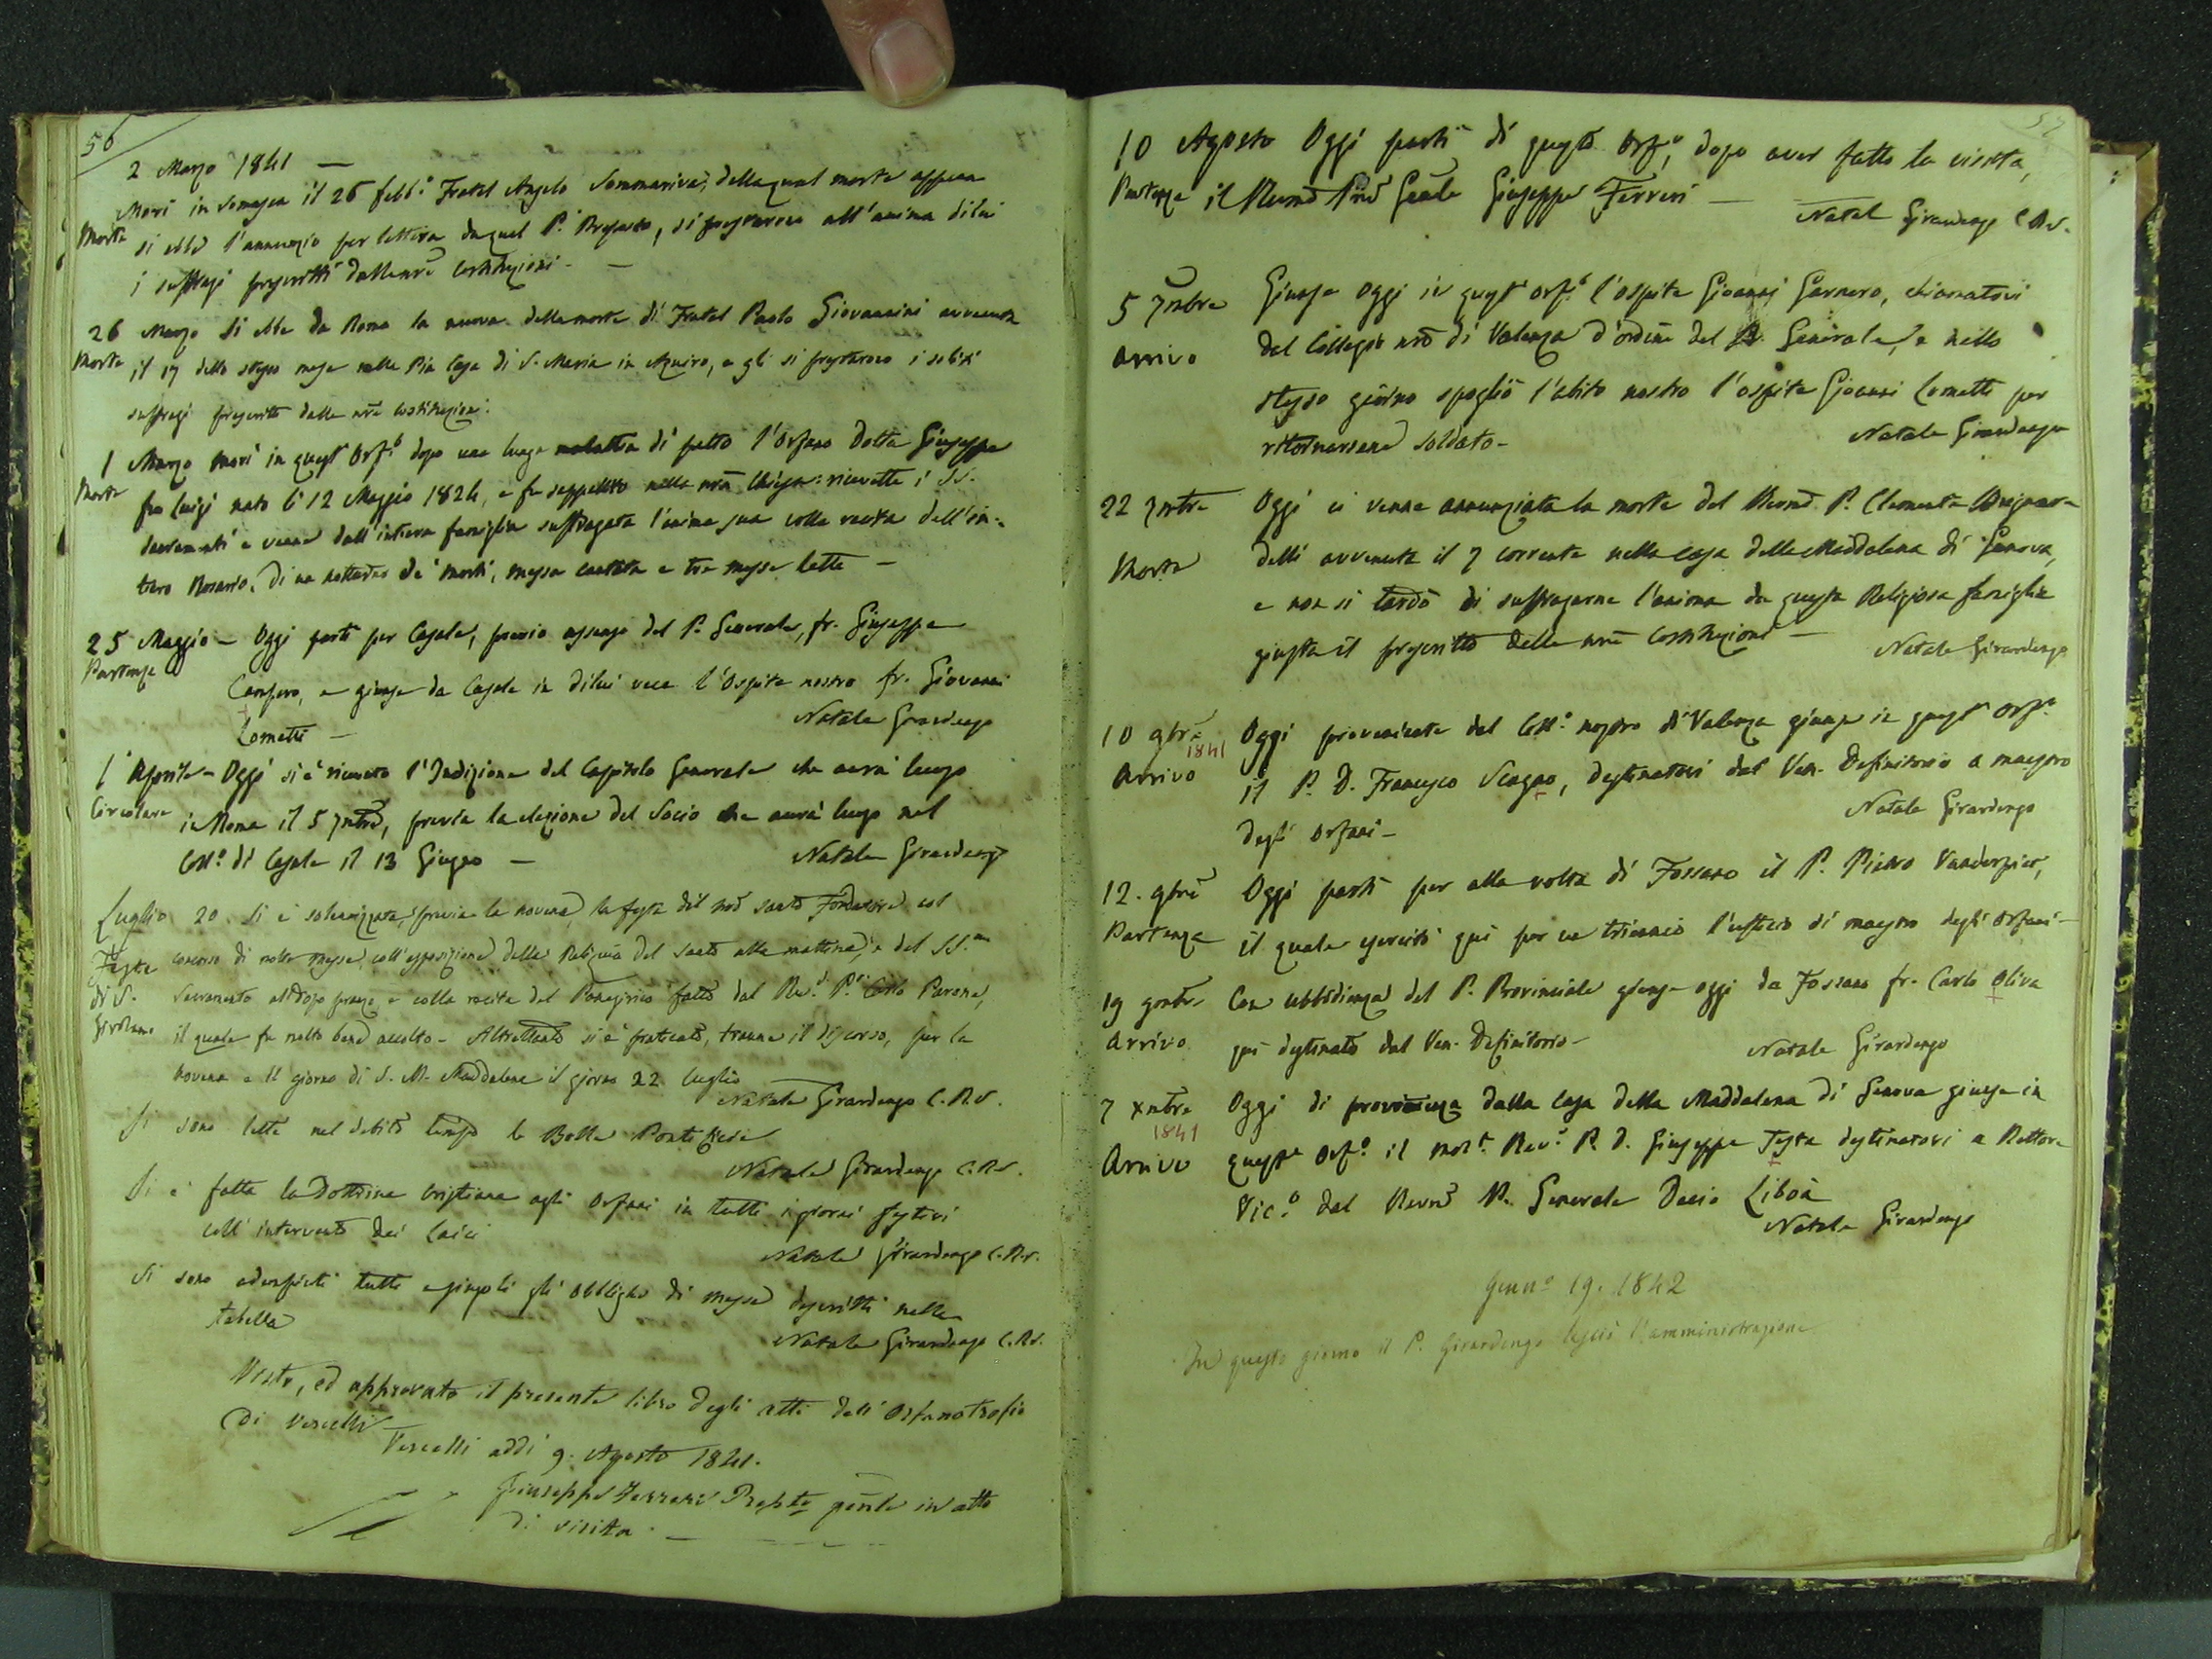 56
2 Marzo 1841 —
Morì in Somasca il 26 febb.º Fratel Angelo Sommariva, della qual morte appena
Morte si ebbe l'annunzio per lettera da quel P. Preposto, si prestarono all'anima di lui
i suffragi prescritti dalle nre Costituzioni — —
26 Marzo Si ebbe da Roma la nuova della morte di Fratel Paolo Giovannini avvenuta
Morte il 17 dello stesso mese nella Pia Casa di S. Maria in Aquiro, e gli si prestarono i soliti
suffragi prescritti dalle nre Costituzioni.
1 Marzo morì in quest' Orf.º dopo una lunga malattia di petto l'Orfano Dotta Giuseppe
Morte fu Luigi nato li 12 Maggio 1824, e fu seppellito nella nra Chiesa: ricevette i SS.
Sacramenti e venne dall'intiera famiglia suffragata l'anima sua colla recita dell'in-
tero Rosario, di un notturno de' morti, messa cantata e tre messe lette —
25 Maggio — Oggi partì per Casale, previo assenso del P. Generale, fr. Giuseppe
Partenza Campero, e giunse da Casale in di lui vece l'Ospite nostro fr. Giovanni
Lometti — Natale Girardengo
1 Aprile — Oggi si è ricevuto l'Indizione del Capitolo Generale che avrà luogo
Circolare in Roma il 5 7mbre, previa la elezione del Socio che avrà luogo nel
Coll.º di Casale il 13 Giugno — Natale Girardengo
Luglio 20 Si è solennizzata, previa la novena, la festa del nro santo Fondatore col
Festa concorso di molte messe, coll'esposizione della Reliquia del Santo alla mattina, e del SS.mo
di S. Sacramento al dopo pranzo, e colla recita del Panegirico fatto dal Rev.º P. Carlo Parone,
Girolamo il quale fu molto bene accolto — Altrettanto si è praticato, tranne il discorso, per la
novena e il giorno di S. M. Maddalena il giorno 22 luglio
Natale Girardengo C.R.S.
Si sono lette nel debito tempo le Bolle Pontificie
Natale Girardengo C.R.S.
Si è fatta la Dottrina Cristiana agli Orfani in tutti i giorni festivi
coll'intervento dei laici
Natale Girardengo C.R.S.
Si sono adempiuti tutti e singoli gli obblighi di messe descritti nella
tabella
Natale Girardengo C.R.S.
Visto, ed approvato il presente libro degli atti dell'Orfanotrofio
di Vercelli
Vercelli addì 9. Agosto 1841.
Giuseppe Ferreri Prepto genle in atto
di visita. —
57
10 Agosto Oggi partì di questo Orf.º, dopo aver fatto la visita,
Partenza il Revmo Pre Genle Giuseppe Ferreri —
Natal Girardengo C.R.S.
5 7mbre Giunse oggi in quest' Orf.º l'ospite Giovanni Garnero, chiamatovi
Arrivo dal Collegio nro di Valenza d'ordine del P. Generale, e nello
stesso giorno spogliò l'abito nostro l'ospite Giovanni Lometti per
ritornarsene soldato — Natale Girardengo
22 7mbre Oggi ci venne annunziata la morte del Revmo P. Clemente Brignar-
Morte delli avvenuta il 7 corrente nella casa della Maddalena di Genova,
e non si tardò di suffragarne l'anima da questa Religiosa famiglia
giusta il prescritto delle nre Costituzioni — Natale Girardengo
10 9bre Oggi proveniente dal Coll.º nostro di Valenza giunse in quest' Orf.º
1841
Arrivo il P. D. Francesco Scagno, destinatovi dal Ven. Definitorio a maestro
degli orfani — Natale Girardengo
12. 9bre Oggi partì per alla volta di Fossano il P. Pietro
Partenza il quale esercitò qui per un triennio l'uffizio di maestro degli orfani —
19 9mbre Con ubbidienza del P. Provinciale giunse oggi da Fossano fr. Carlo Oliva
Arrivo qui destinato dal Ven. Definitorio — Natale Girardengo
7 Xmbre Oggi di provenienza dalla casa della Maddalena di Genova giunse in
1841
Arrivo questo Orf.º il mol.º Rev.º P. D. Giuseppe Testa destinatovi a Rettore
Vic.º dal Revmo P. Generale Decio Liboà
Natale Girardengo
Genn.º 19. 1842
In questo giorno il P. Girardengo lasciò l'amministrazione